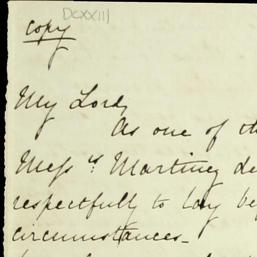 DCXXIII
Copy
My Lord,
As one of th
Messrs: Martinez de
respectfully to lay be
circumstances_